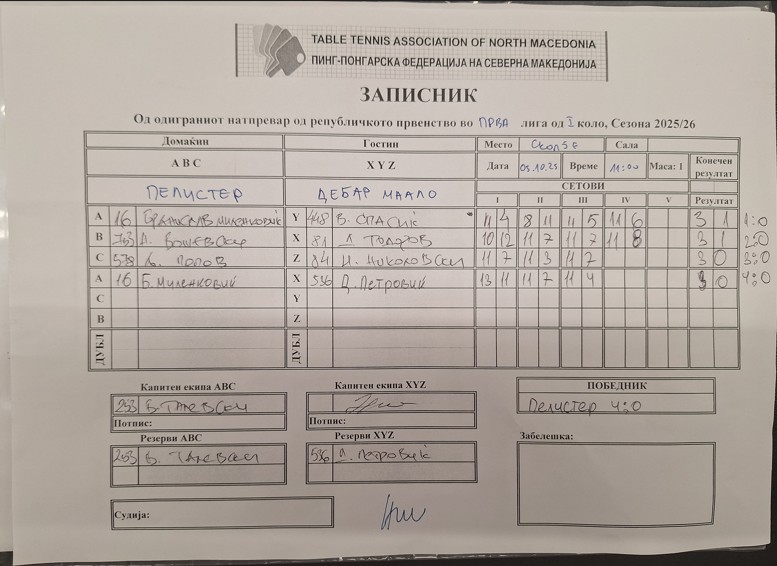 TABLE TENNIS ASSOCIATION OF NORTH MACEDONIA
ПИНГ-ПОНГАРСКА ФЕДЕРАЦИЈА НА СЕВЕРНА МАКЕДОНИЈА
ЗАПИСНИК
Од одиграниот натпревар од републичкото првенство во ПРВА лига од I коло, Сезона 2025/26
Домаќин Гостин Место Сала
A B C X Y Z Дата 05.10.25 Време 11:00 Маса: 1 Конечен резултат
ПЕЛИСТЕР ДЕБАР МААЛО СЕТОВИ
I II III IV V Резултат
A 16 БРАНИСЛАВ МИЛЕНКОВИЌ Y 448 В. СПАСИЌ 11 4 8 11 11 5 11 6 3 1 1:0
B X 81 10 12 11 7 11 7 11 8 3 1 2:0
C 578 ПОПОВ Z 84 Н. НИКОЛОВСКИ 11 7 11 3 11 7 3 0 3:0
A 16 Б. МИЛЕНКОВИЌ X 536 Д. ПЕТРОВИЌ 13 11 11 7 11 4 3 0 4:0
C Y
B Z
ДУБЛ ДУБЛ
Капитен екипа ABC Капитен екипа XYZ ПОБЕДНИК
253 ТАЛЕВСКИ Пелистер 4:0
Потпис: Потпис:
Резерви ABC Резерви XYZ Забелешка:
253 ТАЛЕВСКИ 536 Д. ПЕТРОВИЌ
Судија: